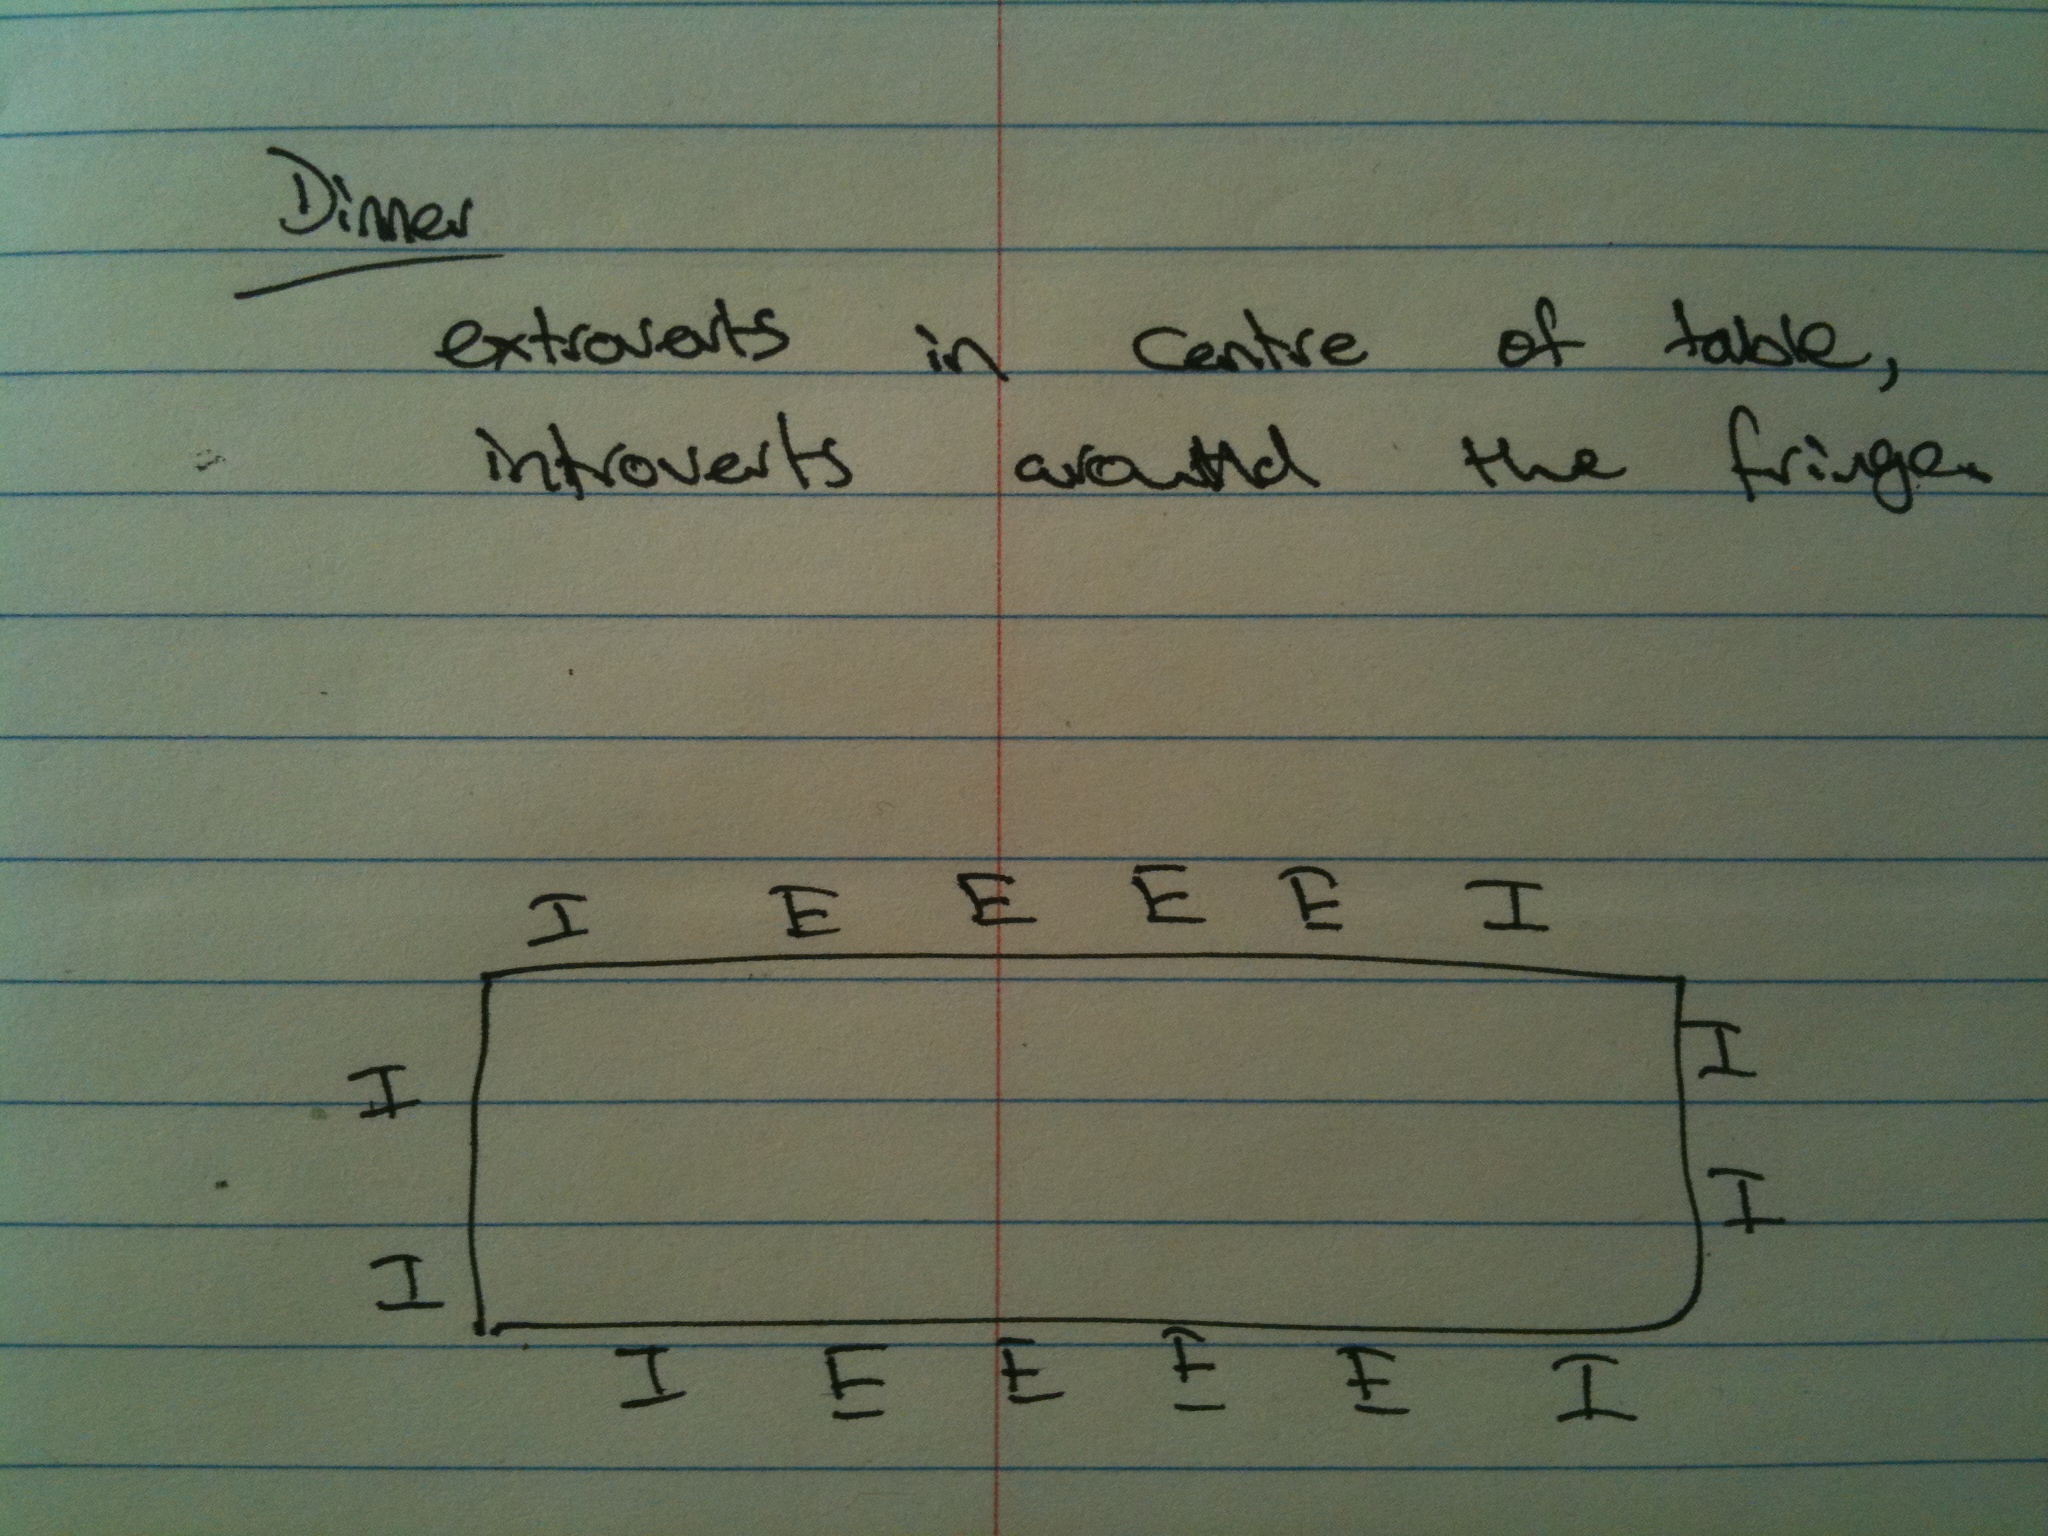 Dinner
extroverts in centre of table,
introverts around the fringe.
I E E E E I
I I
I I
I E E E E I